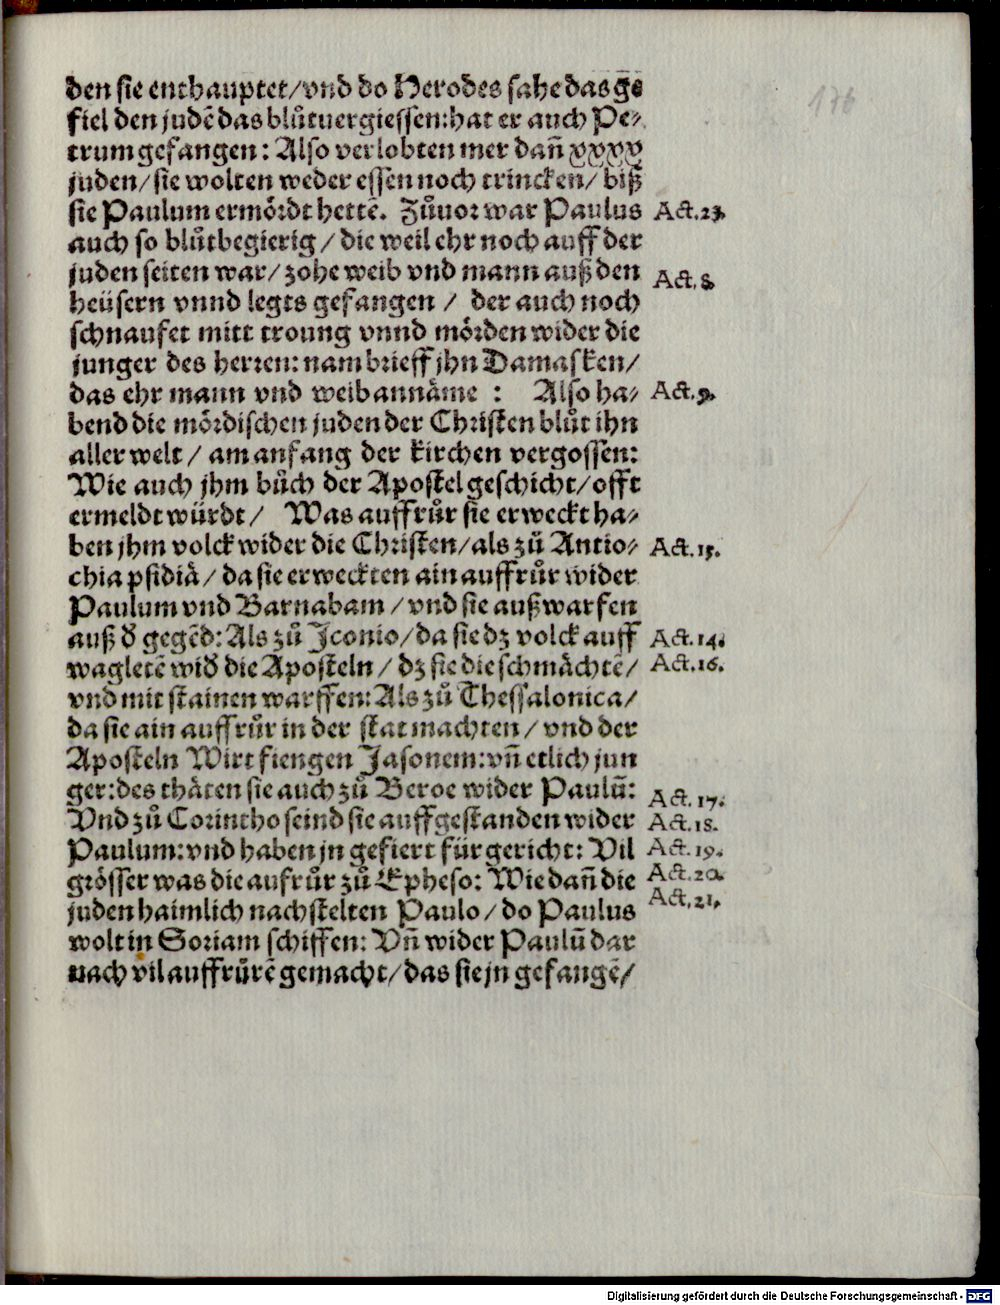 176
den sie enthauptet/vnd do Herodes sahe das gē
fiel den judē das blůtuergiessen: hat er auch Pe-
trum gefangen: Also verlobten mer dañ xxxx
juden/sie wolten weder essen noch trincken/biß
sie Paulum ermördt hettē. Zůuor war Paulus Act.23.
auch so blůtbegierig/die weil ehr noch auff der
juden seiten war/zohe weib vnd mann auß den Act.8.
heüsern vnnd legts gefangen / der auch noch
schnaufet mitt troung vnnd mörden wider die
junger des herren: nam brieff jhn Damasken/
das ehr mann vnd weib annäme : Also ha- Act.9.
bend die mördischen juden der Christen blůt ihn
aller welt / am anfang der kirchen vergossen:
Wie auch jhm bůch der Apostel geschicht/offt
ermeldt würdt/ Was auffrůr sie erweckt ha-
ben jhm volck wider die Christen/als zů Antio- Act.13.
chia psidiä/da sie erweckten ain auffrůr wider
Paulum vnd Barnabam/vnd sie außwarfen
auß ď gegēd: Als zů Jconio/da sie dz volck auff Act.14.
wagletē wiď die Aposteln/dz sie die schmächtē/ Act.16.
vnd mit stainen warffen: Als zů Thessalonica/
da sie ain auffrůr in der stat machten/vnd der
Aposteln Wirt fiengen Jasonem: vñ etlich jun
ger: des thäten sie auch zů Beroe wider Paulū: Act.17.
Vnd zů Corintho seind sie auffgestanden wider Act.18.
Paulum: vnd haben jn gefiert für gericht: Vil Act.19.
grösser was die aufrůr zů Epheso: Wie dañ die Act.20.
juden haimlich nachstelten Paulo/do Paulus Act.21.
wolt in Soriam schiffen: Vñ wider Paulū dar
nach vil auffrůrē gemacht/das sie jn gefangē/
Digitalisierung gefördert durch die Deutsche Forschungsgemeinschaft - DFG